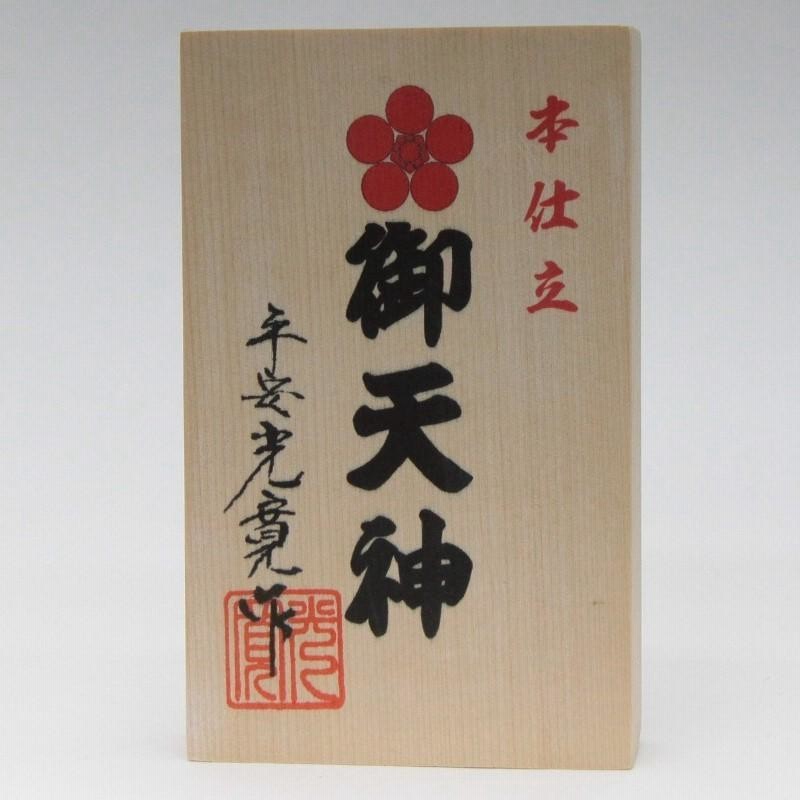 本仕立
御天神
平安光寛作